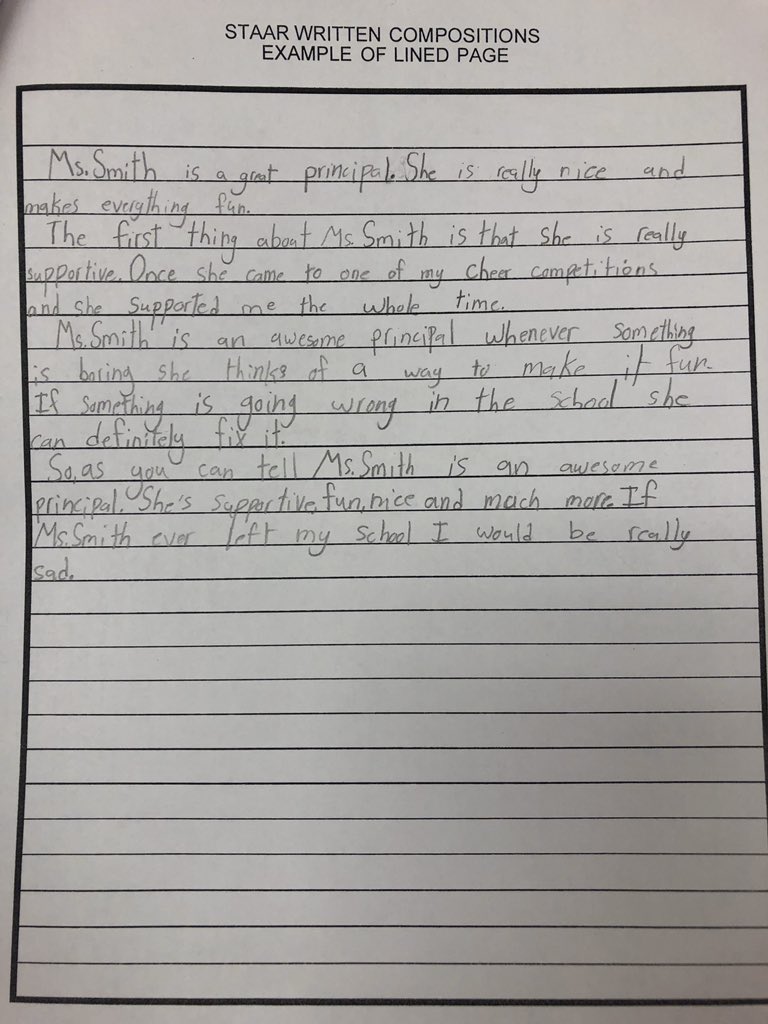 STAAR WRITTEN COMPOSITIONS
EXAMPLE OF LINED PAGE
Ms. Smith is a great principal. She is really nice and
makes everything fun.
The first thing about Ms. Smith is that she is really
supportive. Once she came to one of my cheer competitions
and she supported me the whole time.
Ms. Smith is an awesome principal whenever something
is boring she thinks of a way to make it fun.
If something is going wrong in the school she
can definitely fix it.
So, as you can tell Ms. Smith is an awesome
principal. She's supportive, fun, nice and much more. If
Ms. Smith ever left my school I would be really
sad.